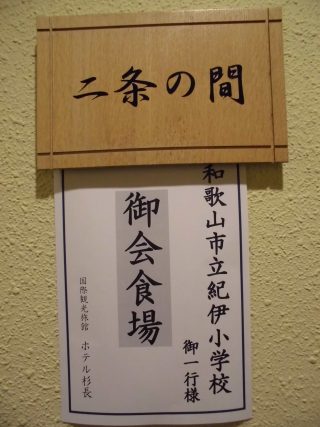 二条の間
和歌山市立紀伊小学校
御一行様
御会食場
国際観光旅館 ホテル杉長